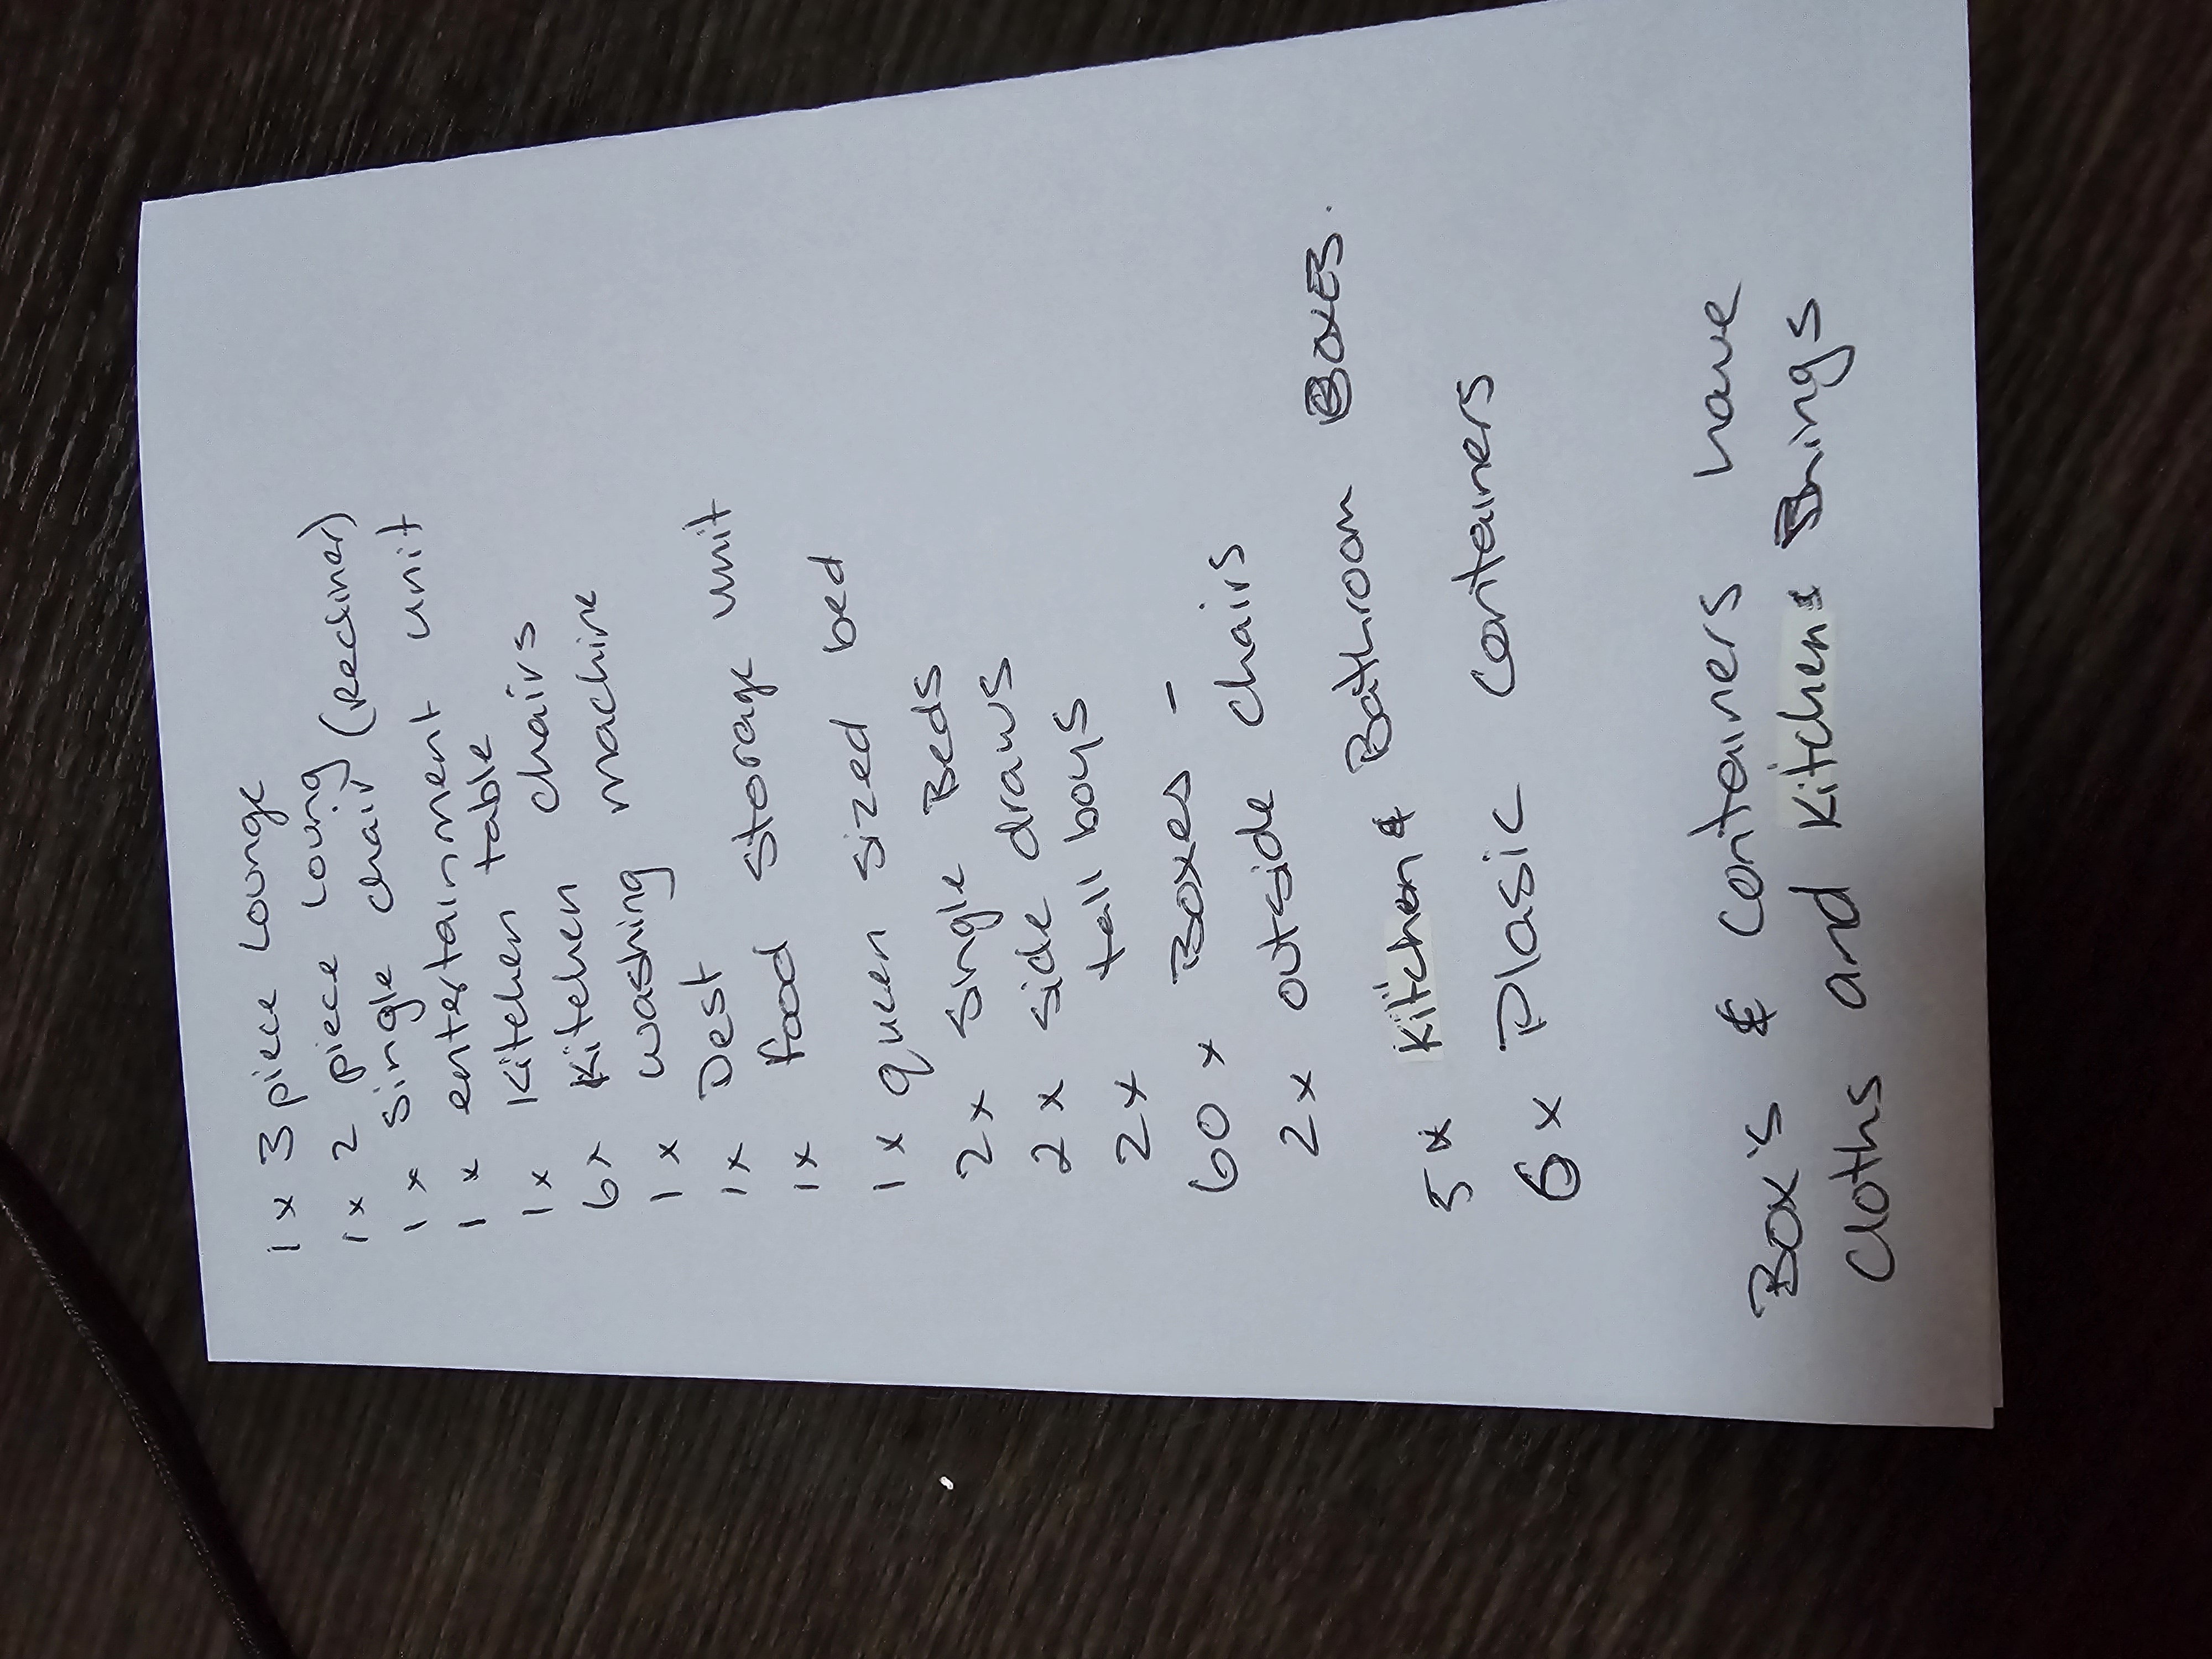 1 x 3 piece Lounge
1 x 2 piece Loung (recliner)
1 x single chair
1 x entertainment unit
1 x Kitchen table
6 x Kitchen chairs
1 x washing machine
1 x Dest
1 x food storage unit
1 x queen sized bed
2 x single Beds
2 x side draws
2 x tall boys
60 x Boxes -
2 x outside chairs
5 x Kitchen & Bathroom Boxes.
6 x Plasic Containers
Box's & Containers have
Cloths and Kitchen &